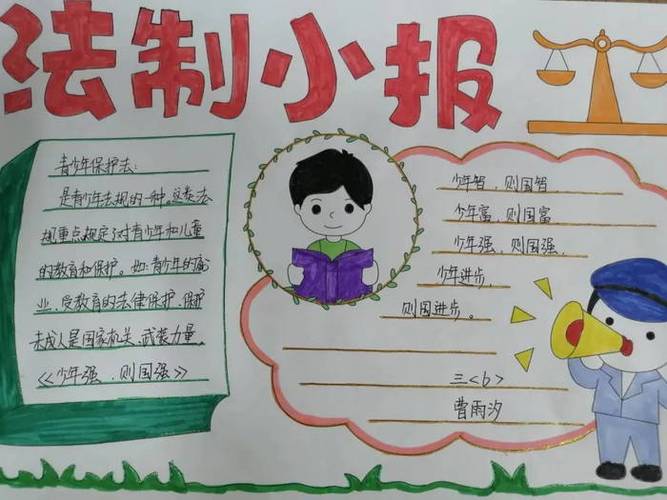 法制小报
青少年保护法:
是青少年法规的一种。这类法
规重点规定了对青少年和儿童
的教育和保护。如:青少年的就
业、受教育的法律保护、保护
未成人是国家机关、武装力量、
<<少年强、则国强>>
少年智、则国智
少年富、则国富
少年强、则国强、
少年进步、
则国进步。
三<6>
曹雨汐